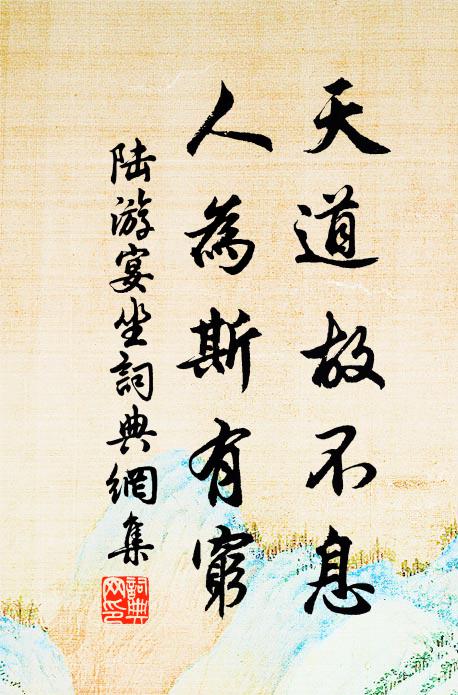 天道故不息
人為斯有窮
陸游宴坐詞典網集
詞典網印